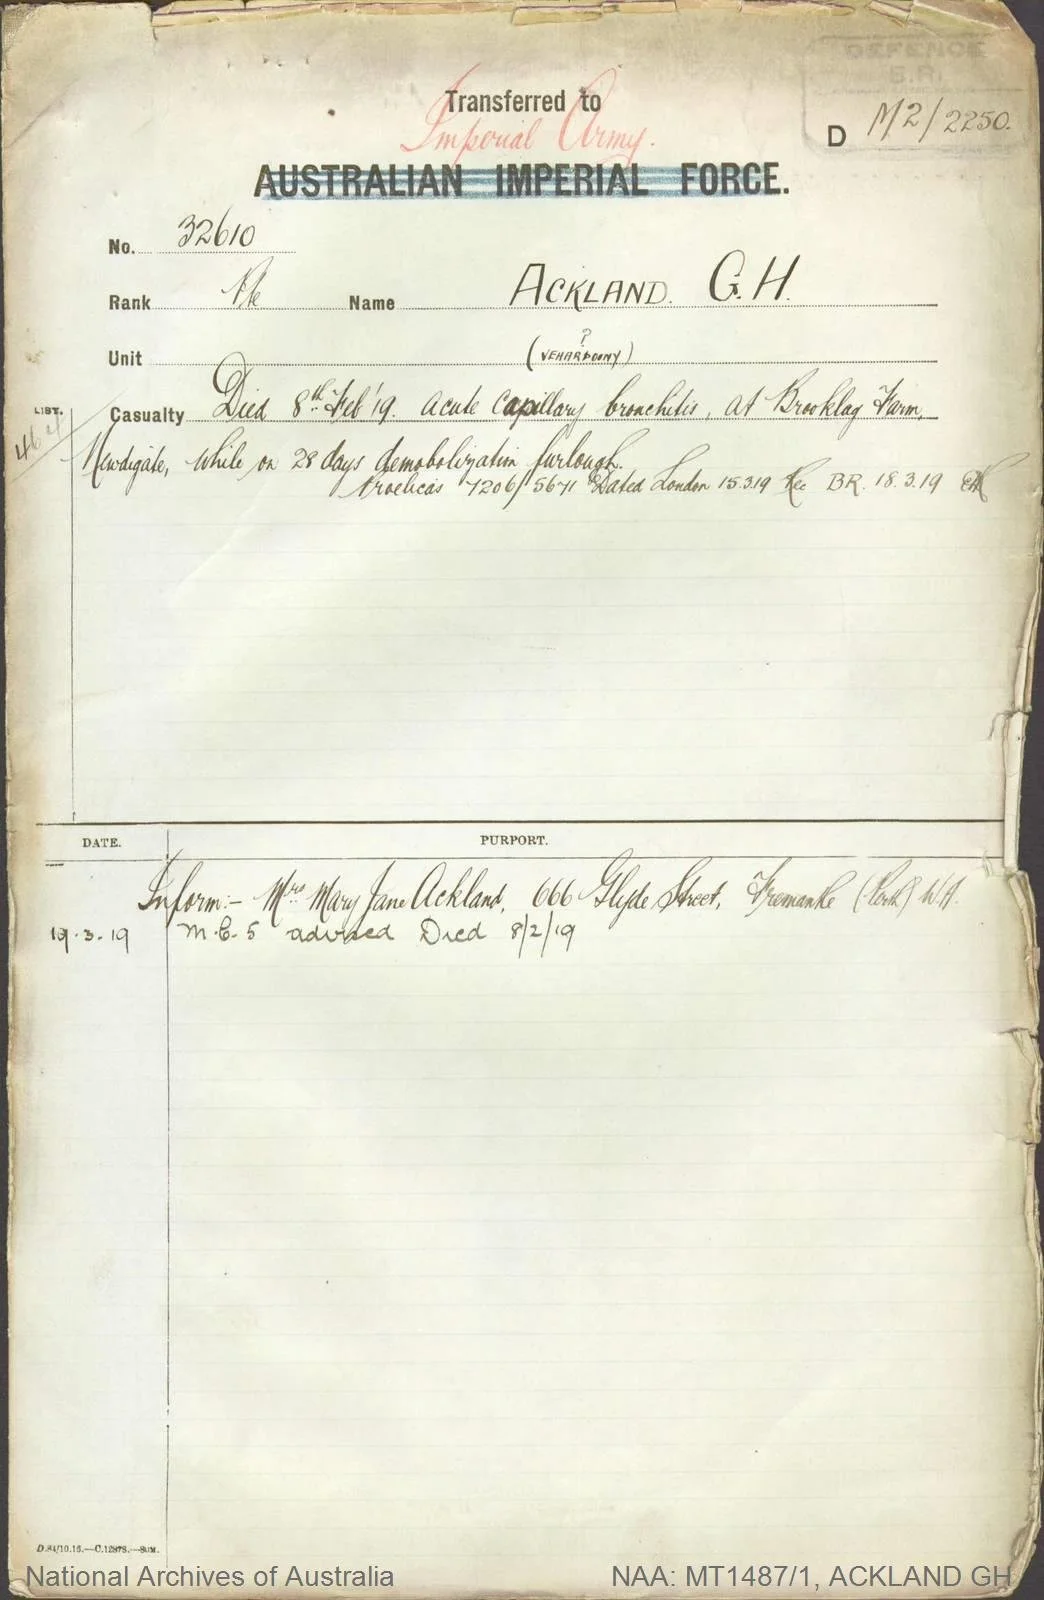 DEFENCE
B.R.
Transferred to
Imperial Army.
D M2/2250.
AUSTRALIAN IMPERIAL FORCE.
No. 32610
Rank Pte Name ACKLAND. G.H.
?
Unit (VEHARDONY)
LIST.
Casualty Died 8th Feb '19. acute capillary bronchitis, at Brooklag Farm,
Newdigate, while on 28 days demobolization furlough.
7206/5671 Dated London 15.3.19 Rec BR. 18.3.19
DATE. PURPORT.
Inform:- Mrs Mary Jane Ackland, 666 Glyde Street, Fremantle (Perth) W.A.
19.3.19 M.C. 5 advised Died 8/2/19
D.84/10.16.—C.12878.—50M.
National Archives of Australia NAA: MT1487/1, ACKLAND GH